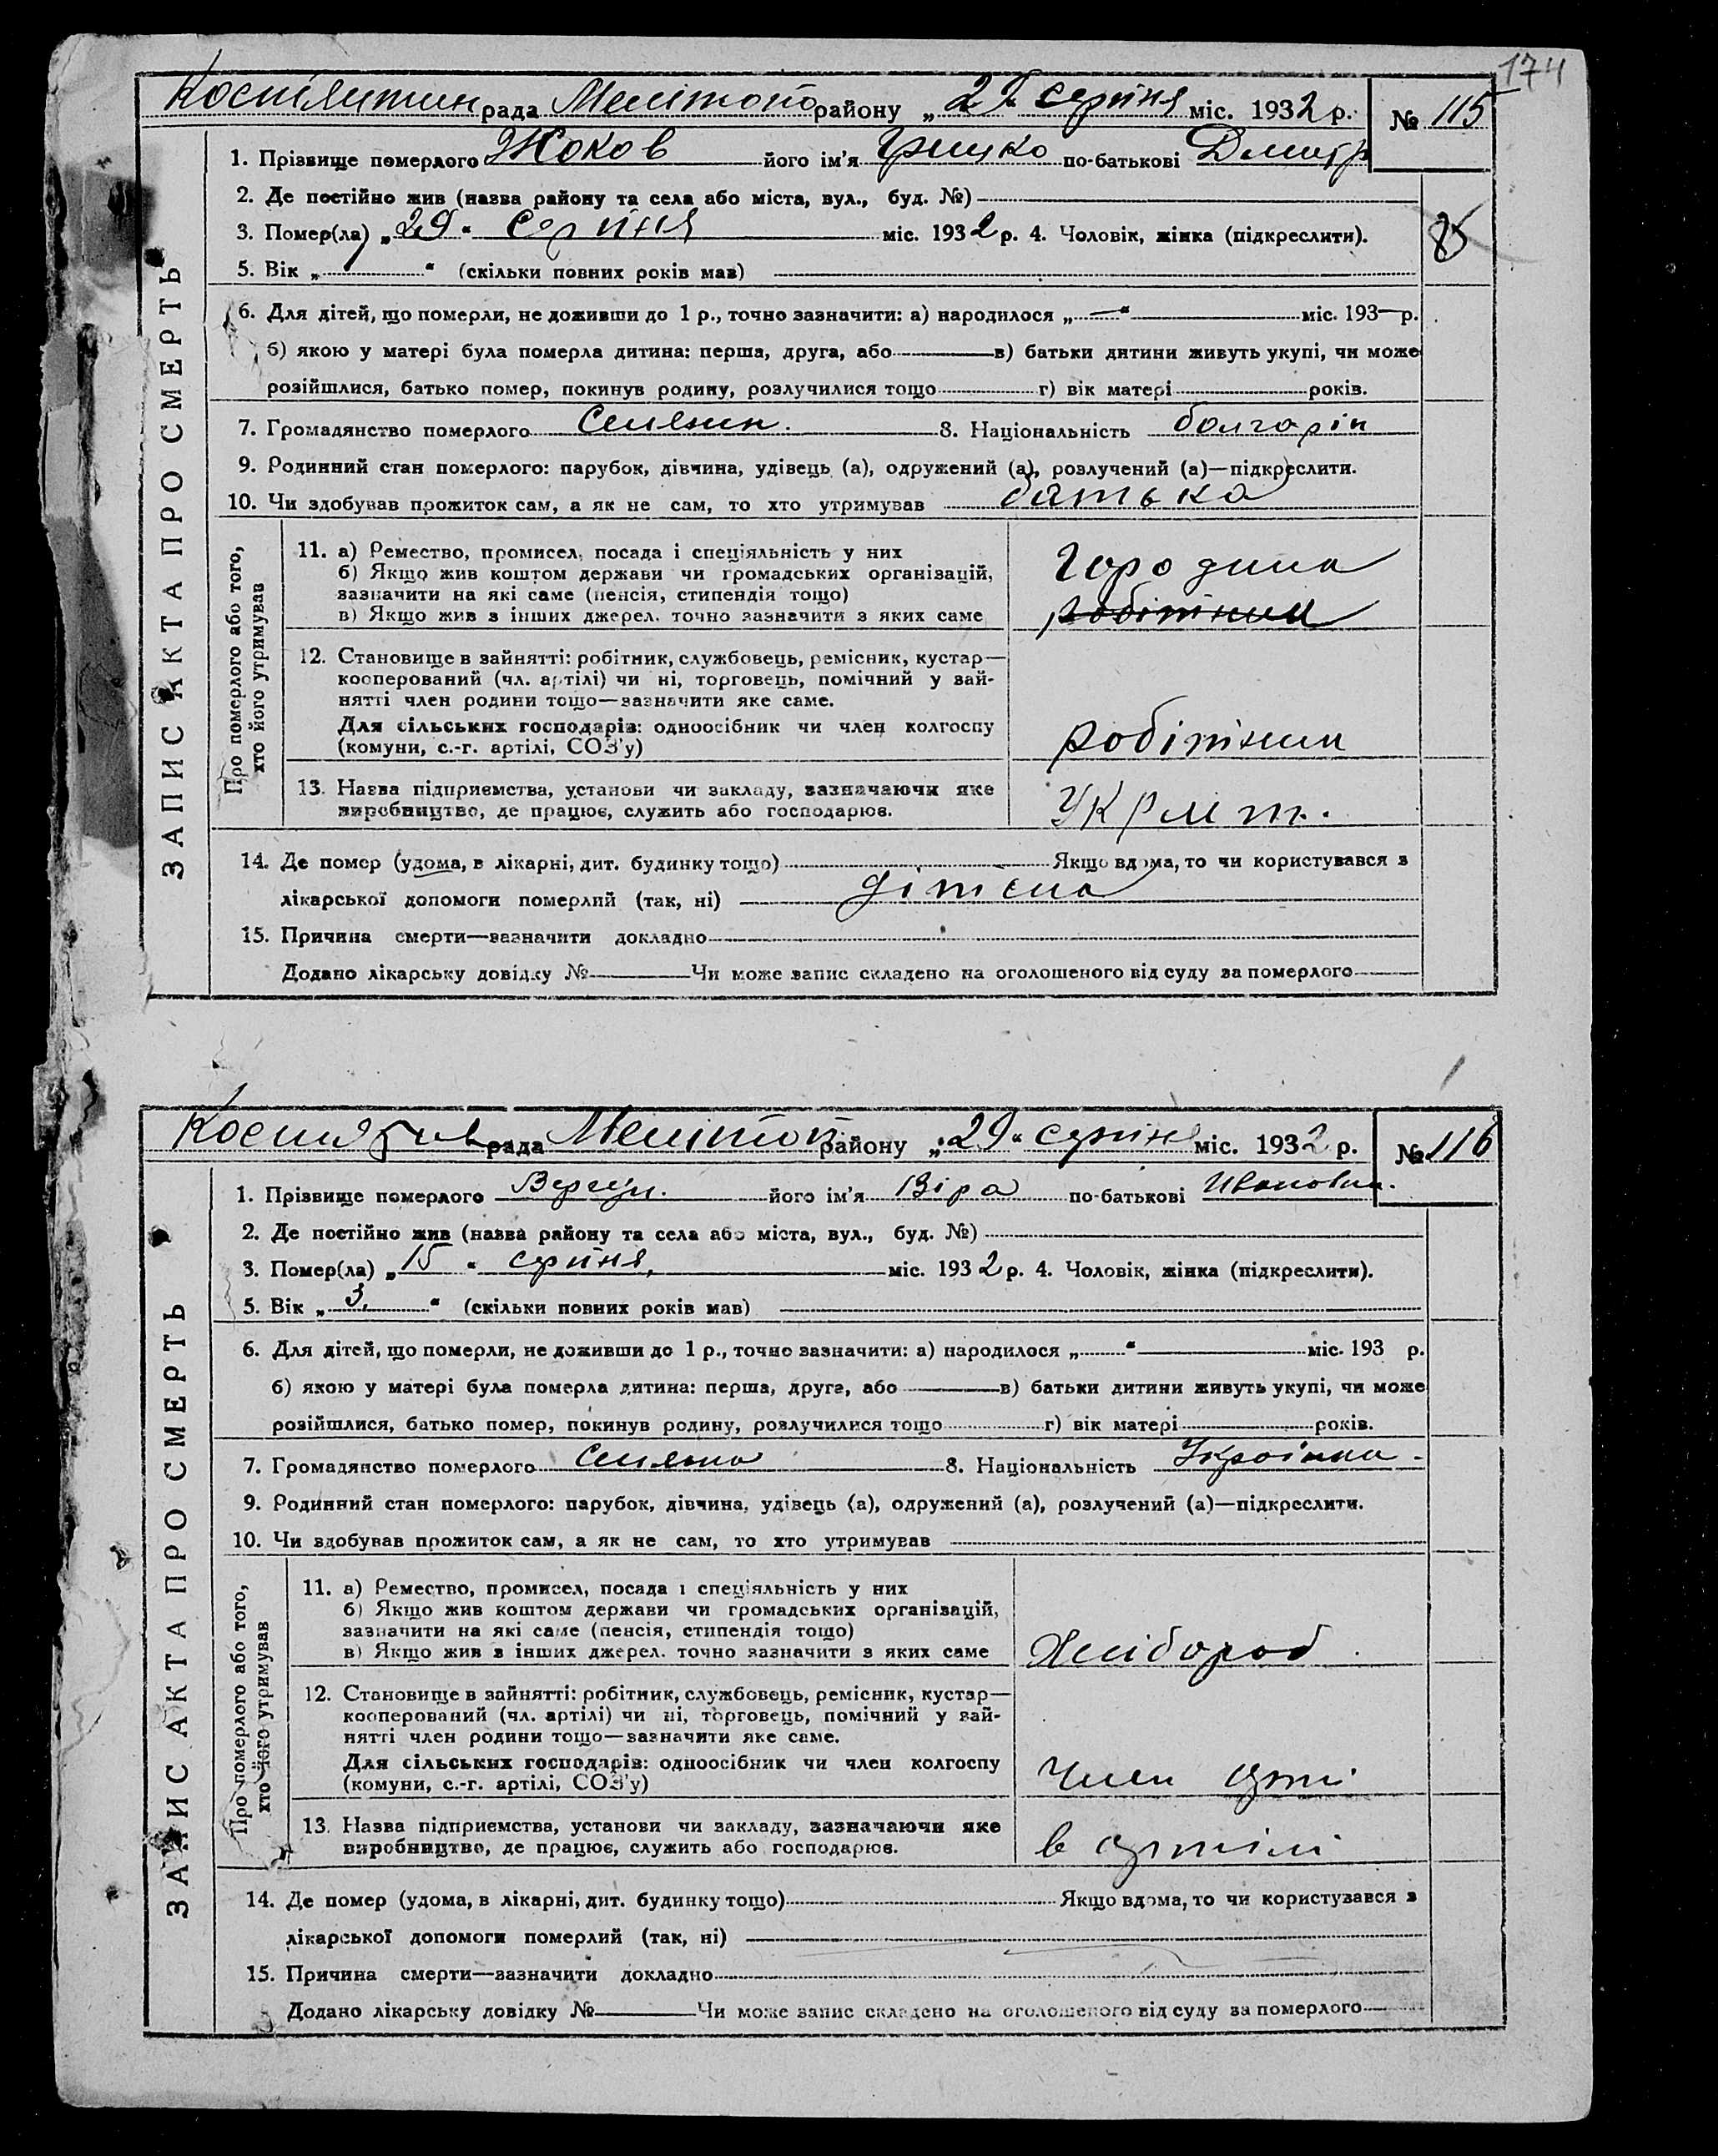 174
Костянтин рада Мелітопо району „29“ серпня міс. 1932 р. № 115
ЗАПИС АКТА ПРО СМЕРТЬ
1. Прізвище померлого Жоков його ім’я Грицко по-батькові Дмитр
2. Де постійно жив (назва району та села або міста, вул., буд. №)
3. Помер(ла) „29“ серпня міс. 1932 р. 4. Чоловік, жінка (підкреслити).
5. Вік „1“ (скільки повних років мав)
6. Для дітей, що померли, не доживши до 1 р., точно зазначити: а) народилося „—“ міс. 193— р.
б) якою у матері була померла дитина: перша, друга, або в) батьки дитини живуть укупі, чи може
розійшлися, батько помер, покинув родину, розлучилися тощо г) вік матері років.
7. Громадянство померлого Селянин. 8. Національність болгарін
9. Родинний стан померлого: парубок, дівчина, удівець (а), одружений (а), розлучений (а)—підкреслити.
10. Чи здобував прожиток сам, а як не сам, то хто утримував батька
Про померлого або того, хто його утримував
11. а) Ремество, промисел, посада і спеціяльність у них
б) Якщо жив коштом держави чи громадських організацій,
зазначити на які саме (пенсія, стипендія тощо)
в) Якщо жив з інших джерел. точно зазначити з яких саме
Городина
робітник
12. Становище в зайнятті: робітник, службовець, ремісник, кустар—
кооперований (чл. артілі) чи ні, торговець, помічний у зай-
нятті член родини тощо—зазначити яке саме.
Для сільських господарів: одноосібник чи член колгоспу
(комуни, с.-г. артілі, СОЗ’у)
робітник
13. Назва підприємства, установи чи закладу, зазначаючи яке
виробництво, де працює, служить або господарює.
14. Де помер (удома, в лікарні, дит. будинку тощо) Якщо вдома, то чи користувався з
лікарської допомоги померлий (так, ні)
15. Причина смерти—зазначити докладно
Додано лікарську довідку № Чи може запис складено на оголошеного від суду за померлого
рада Мелітоп району „29“ серпня міс. 1932 р. № 116
ЗАПИС АКТА ПРО СМЕРТЬ
1. Прізвище померлого Вергун. його ім’я Віра по-батькові Ивановна.
2. Де постійно жив (назва району та села або міста, вул., буд. №)
3. Помер(ла) „15“ серпня, міс. 1932 р. 4. Чоловік, жінка (підкреслити).
5. Вік „3.“ (скільки повних років мав)
6. Для дітей, що померли, не доживши до 1 р., точно зазначити: а) народилося „“ міс. 193 р.
б) якою у матері була померла дитина: перша, друга, або в) батьки дитини живуть укупі, чи може
розійшлися, батько помер, покинув родину, розлучилися тощо г) вік матері років.
7. Громадянство померлого Селянка 8. Національність Українка -
9. Родинний стан померлого: парубок, дівчина, удівець (а), одружений (а), розлучений (а)—підкреслити.
10. Чи здобував прожиток сам, а як не сам, то хто утримував
Про померлого або того, хто його утримував
11. а) Ремество, промисел, посада і спеціяльність у них
б) Якщо жив коштом держави чи громадських організацій,
зазначити на які саме (пенсія, стипендія тощо)
в) Якщо жив з інших джерел. точно зазначити з яких саме
Хлібороб
12. Становище в зайнятті: робітник, службовець, ремісник, кустар—
кооперований (чл. артілі) чи ні, торговець, помічний у зай-
нятті член родини тощо—зазначити яке саме.
Для сільських господарів: одноосібник чи член колгоспу
(комуни, с.-г. артілі, СОЗ’у)
Член арті
13. Назва підприємства, установи чи закладу, зазначаючи яке
виробництво, де працює, служить або господарює.
в артілі
14. Де помер (удома, в лікарні, дит. будинку тощо) Якщо вдома, то чи користувався з
лікарської допомоги померлий (так, ні)
15. Причина смерти—зазначити докладно
Додано лікарську довідку № Чи може запис складено на оголошеного від суду за померлого